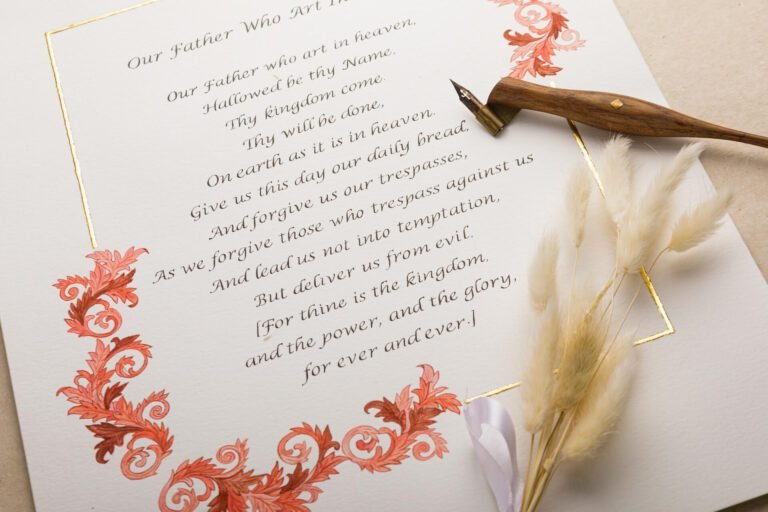 Our Father Who Art In
Our Father who art in heaven,
Hallowed be thy Name.
Thy kingdom come.
Thy will be done,
On earth as it is in heaven.
Give us this day our daily bread.
And forgive us our trespasses,
As we forgive those who trespass against us
And lead us not into temptation,
But deliver us from evil.
[For thine is the kingdom.
and the power, and the glory,
for ever and ever.]